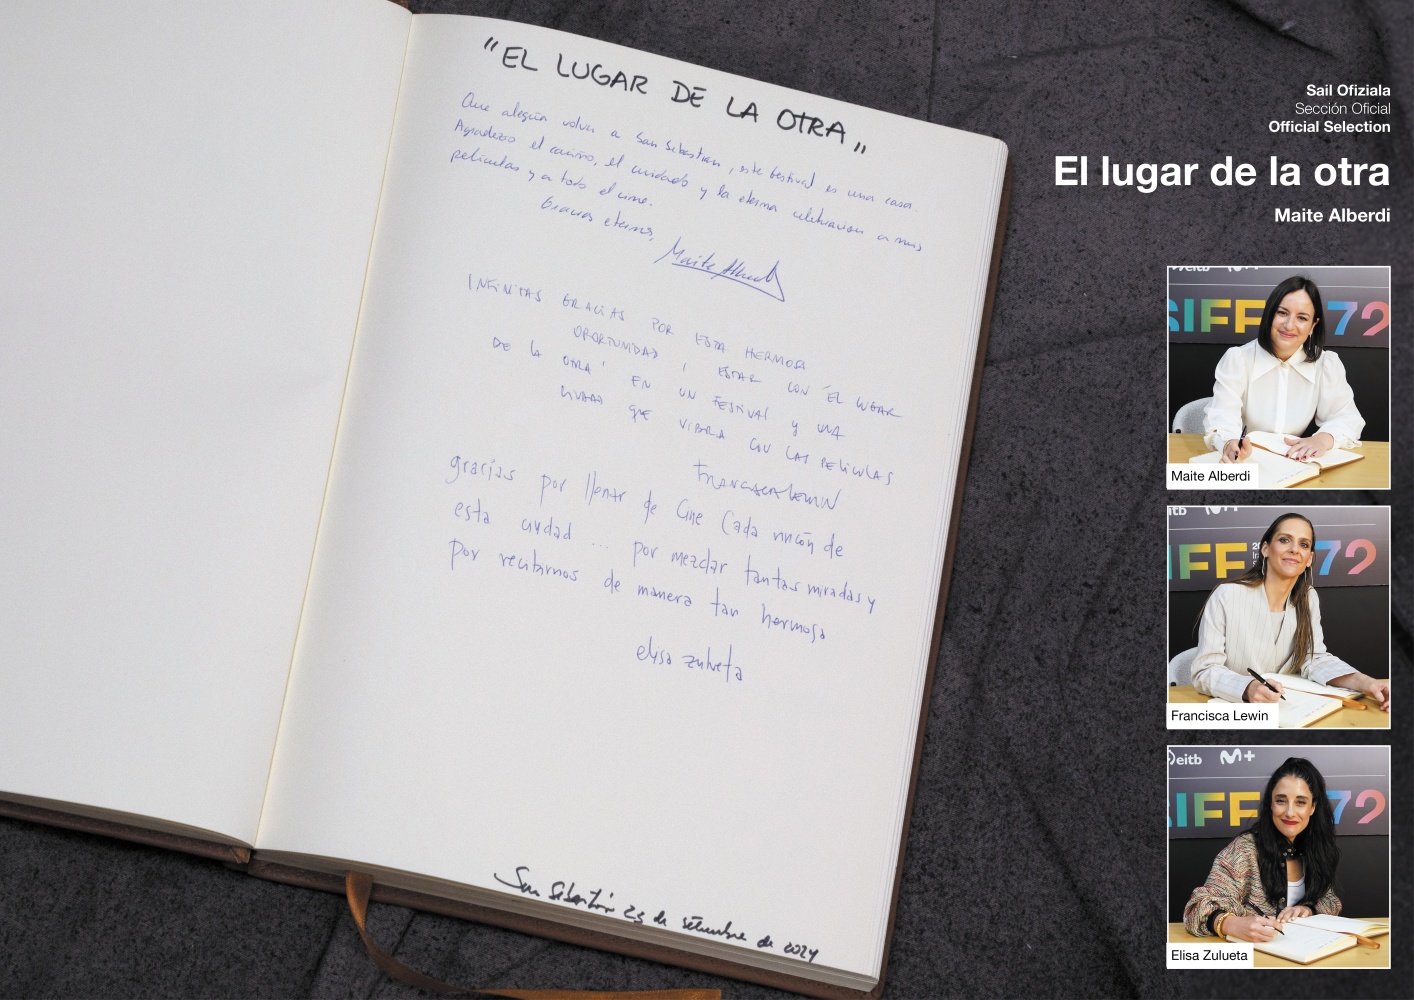 "EL LUGAR DE LA OTRA"
Que alegría volver a San Sebastian, este festival es una casa.
Agradezco el cariño, el cuidado y la eterna celebración a mis
películas y a todo el cine.
Gracias eternas,
Maite Alberdi
INFINITAS GRACIAS POR ESTA HERMOSA
OPORTUNIDAD! ESTAR CON "EL LUGAR
DE LA OTRA" EN UN FESTIVAL Y UNA
CIUDAD QUE VIBRA CON LAS PELICULAS
FRANCISCA LEWIN
gracias por llenar de Cine Cada rincón de
esta ciudad ... por mezclar tantas miradas y
por recibirnos de manera tan hermosa
elisa zulueta
San Sebastián 23 de setiembre de 2024
Sail Ofiziala
Sección Oficial
Official Selection
El lugar de la otra
Maite Alberdi
eitb M+
SIFF 72
Maite Alberdi
itb M+
IFF 72
Francisca Lewin
eitb M+
SIFF 72
Elisa Zulueta